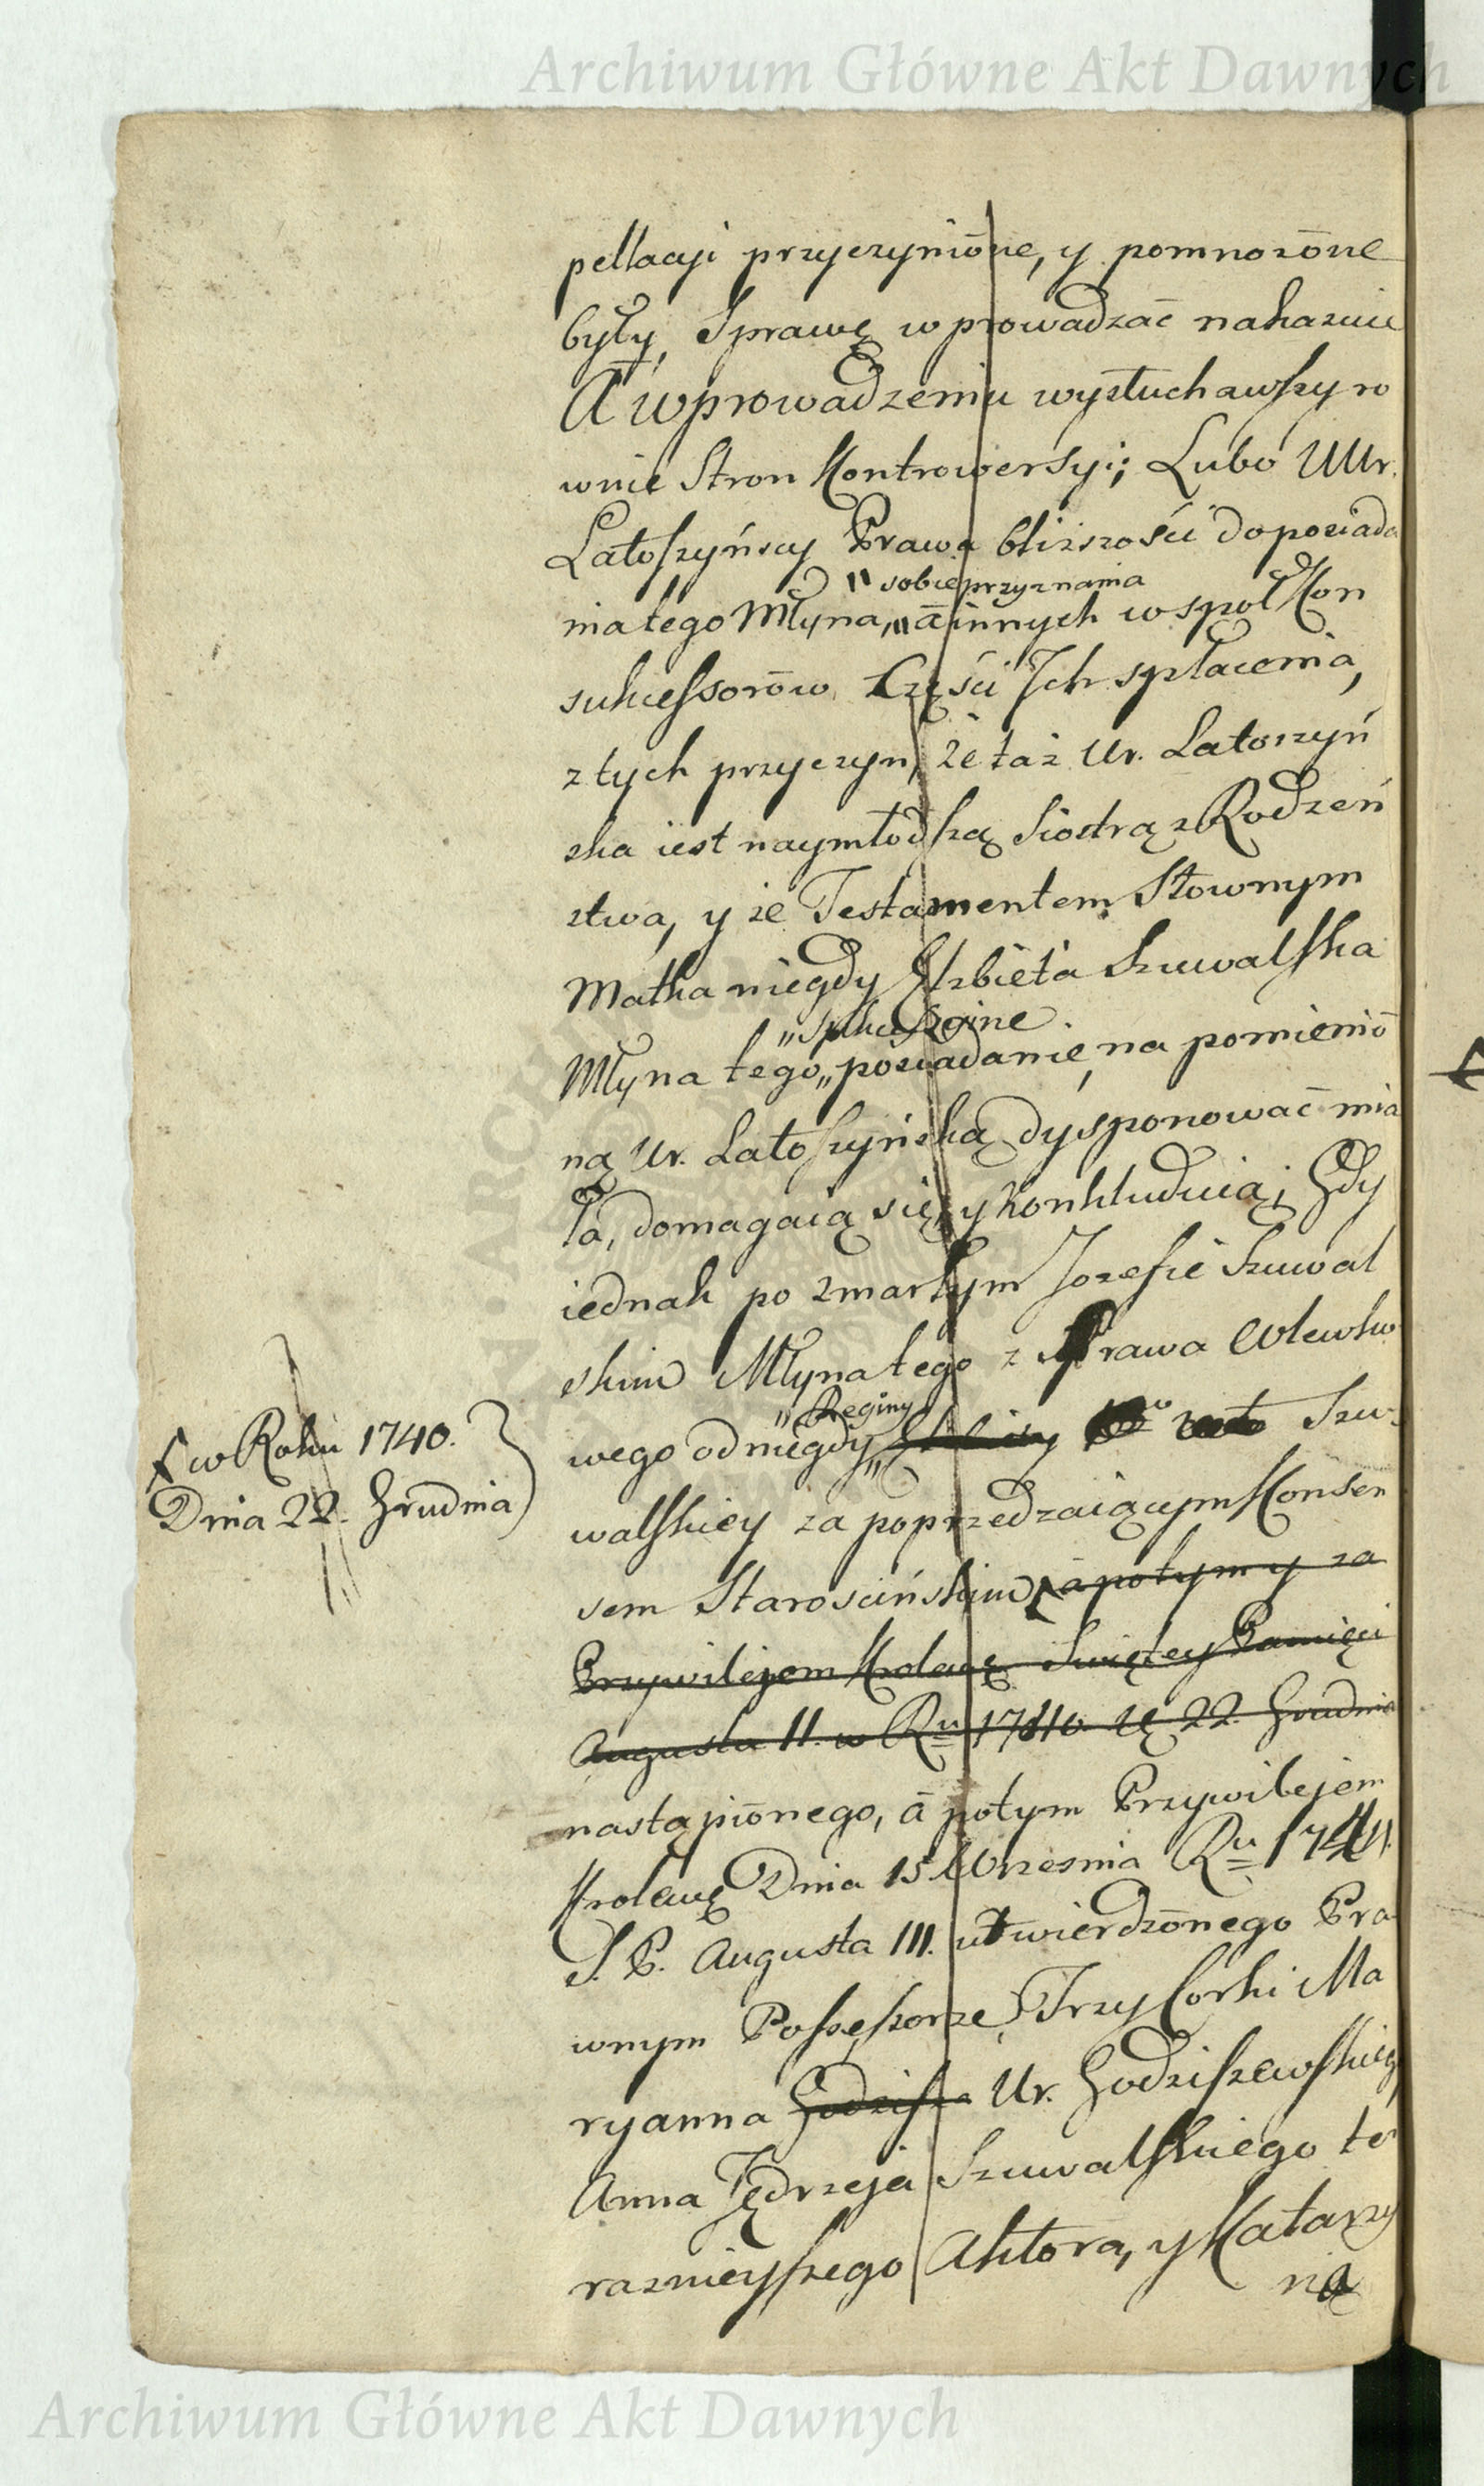 Archiwum Główne Akt Dawnych
pellacyi przyczynióne, y pomnożóne
były, Sprawę wprowadzać nakazuie
A wprowadzeniu wysłuchawszy ro
wnie Stron Kontrowersyi; Lubo UUr.
Latoszyńscy Prawa bliższości do posiada
" sobie przyznania
nia tego Młyna, " ā innych wspoł Kon
sukcessorōw Części Ich spłacenia,
z tych przyczyn, że taż Ur. Latoszyń
ska iest naymłodszą Siostrą z Rodzeń
stwa, y że Testamentem Słownym
Matka niegdy Elzbieta Szuwalska
" sukcessyine
Młyna tego " posiadanie, na pomienió
ną Ur. Latoszyńską dysponować mia
ła, domagaią się, y konkluduią; Gdy
iednak po zmarłym Jozefie Szuwal
skim Młyna tego z Prawa Wlewko
" Reginy
wego od niegdy " Szu-
walskiey za poprzedzaiącym Konsen
sem Starościńskim a potym y za
w Roku 1740.
Dnia 22. Grudnia
Przywilejem Krolewę Swiętey Pamięci
Augusta II. w Ru 1710 22. Grudnia
nastąpiónego, ā potym Przywilejem
Krolewę Dnia 15 Wrzesnia Ru 1741.
S. P. Augusta III. utwierdzōnego Pra
wnym Possesszorze, Trzy Corki Ma
ryanna Godzisze Ur. Godziszewskiey
Anna Jędrzeja Szuwalskiego te
raznieyszego Aktora, y Katarzy
na
Archiwum Główne Akt Dawnych